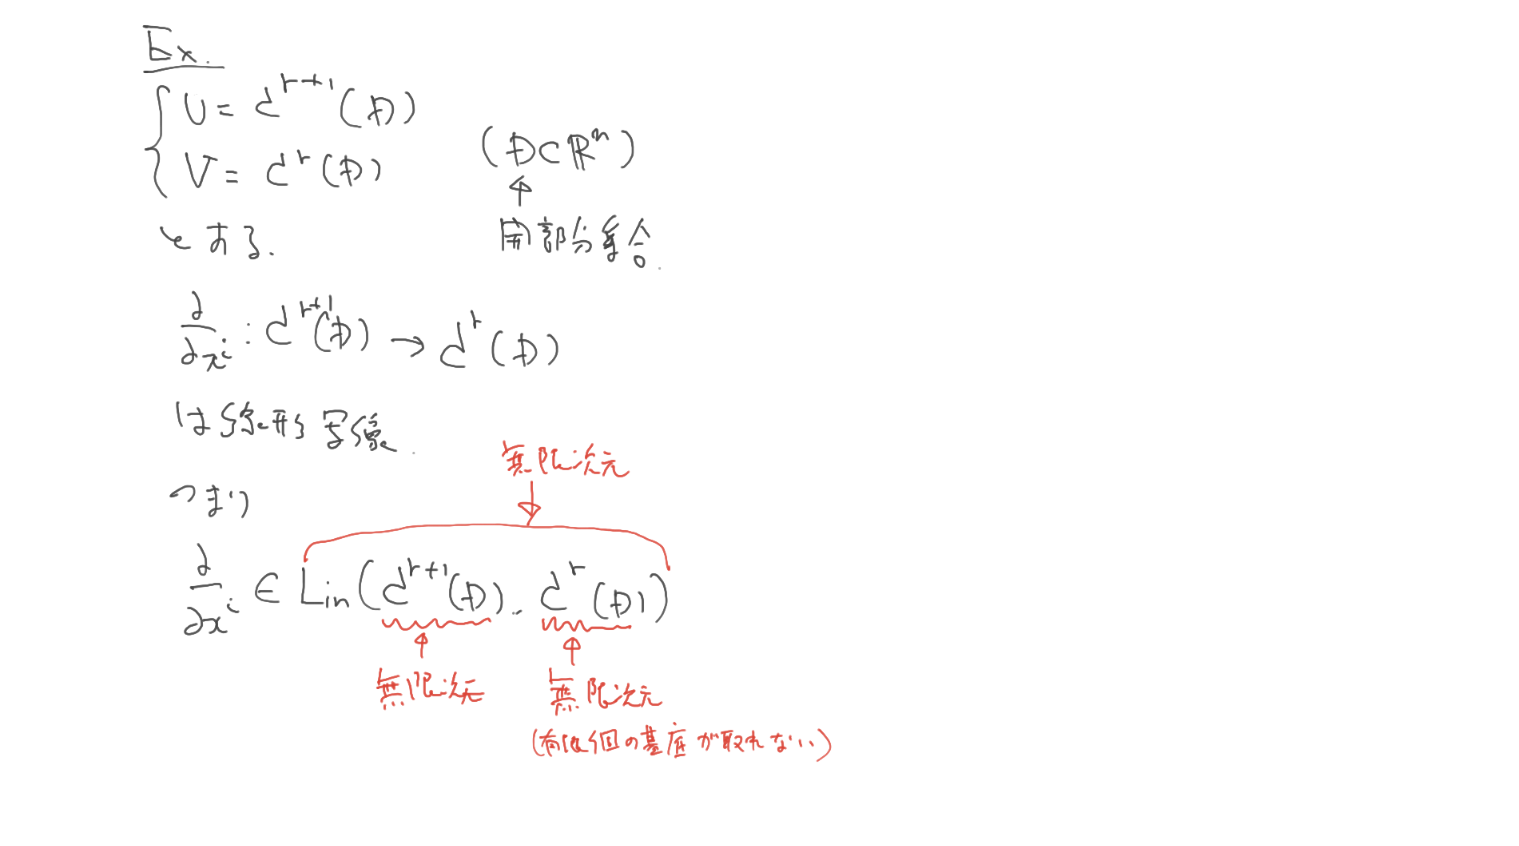 Ex.
U = C^{r+1}(D)
V = C^r(D)
(D⊂ℝ^n)
↑
開部分集合.
とする.
∂/∂x^i : C^{r+1}(D) → C^r(D)
は線形写像.
つまり
無限次元
↓
∂/∂x^i ∈ Lin(C^{r+1}(D), C^r(D))
↑ ↑
無限次元 無限次元
(有限個の基底が取れない)